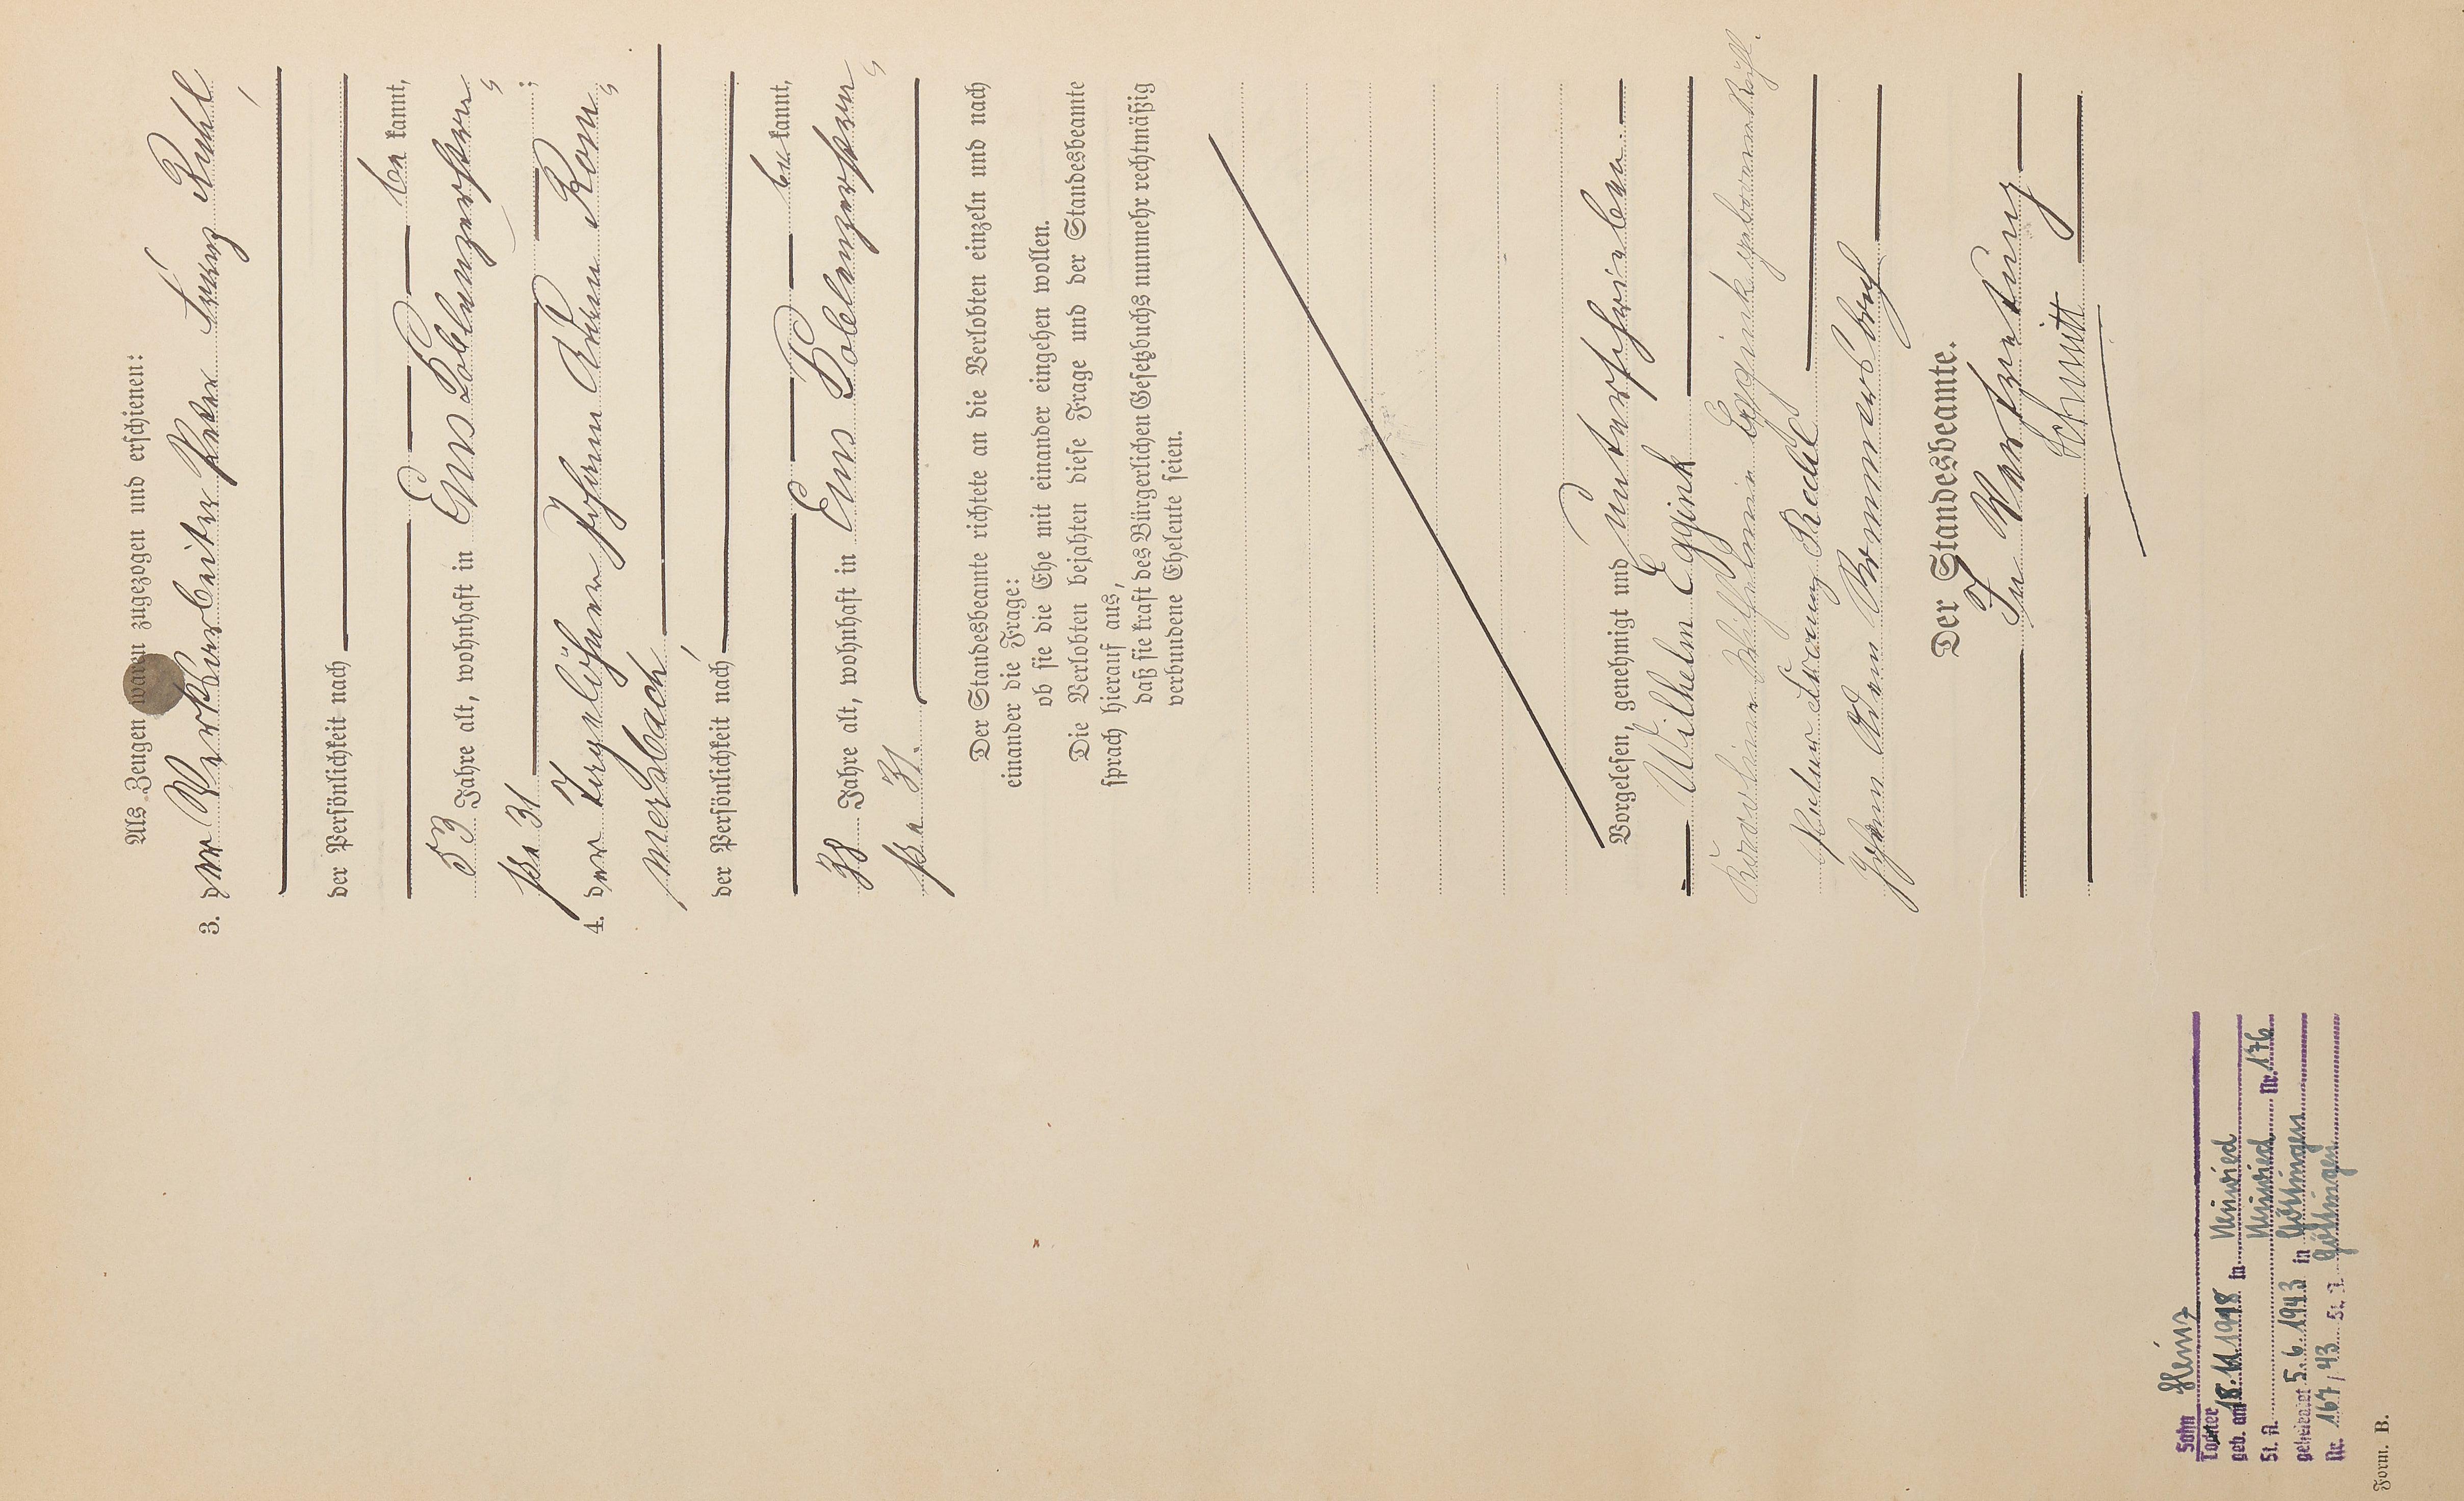 Als Zeugen waren zugezogen und erschienen:
3. der Werkarbeiter Peter Lorenz Ruhl
der Persönlichkeit nach
be kannt,
53 Jahre alt, wohnhaft in Ems Koblenzerstra
ße 31 ;
4. der Tagelöhner Johann Adam Rom,
mersbach
der Persönlichkeit nach
be kannt,
38 Jahre alt, wohnhaft in Ems Koblenzerstra
ße 31.
Der Standesbeamte richtete an die Verlobten einzeln und nach
einander die Frage:
ob sie die Ehe mit einander eingehen wollen.
Die Verlobten bejahten diese Frage und der Standesbeamte
sprach hierauf aus,
daß sie kraft des Bürgerlichen Gesetzbuchs nunmehr rechtmäßig
verbundene Eheleute seien.
Vorgelesen, genehmigt und unterschrieben.
Wilhelm Eggink
Karoline Wilhelmine Eggink geborene Rühl.
Peter Lorenz
Johann Adam Rommersbach
Der Standesbeamte.
In Vertretung
Schmitt
Sohn Heinz
Tochter
geb. am 18.11.1918 in Neuwied
St. A. Neuwied Nr. 176
geheiratet 5.6.1943 in Göttingen
Nr. 167/43 St. A. Göttingen
Form. B.